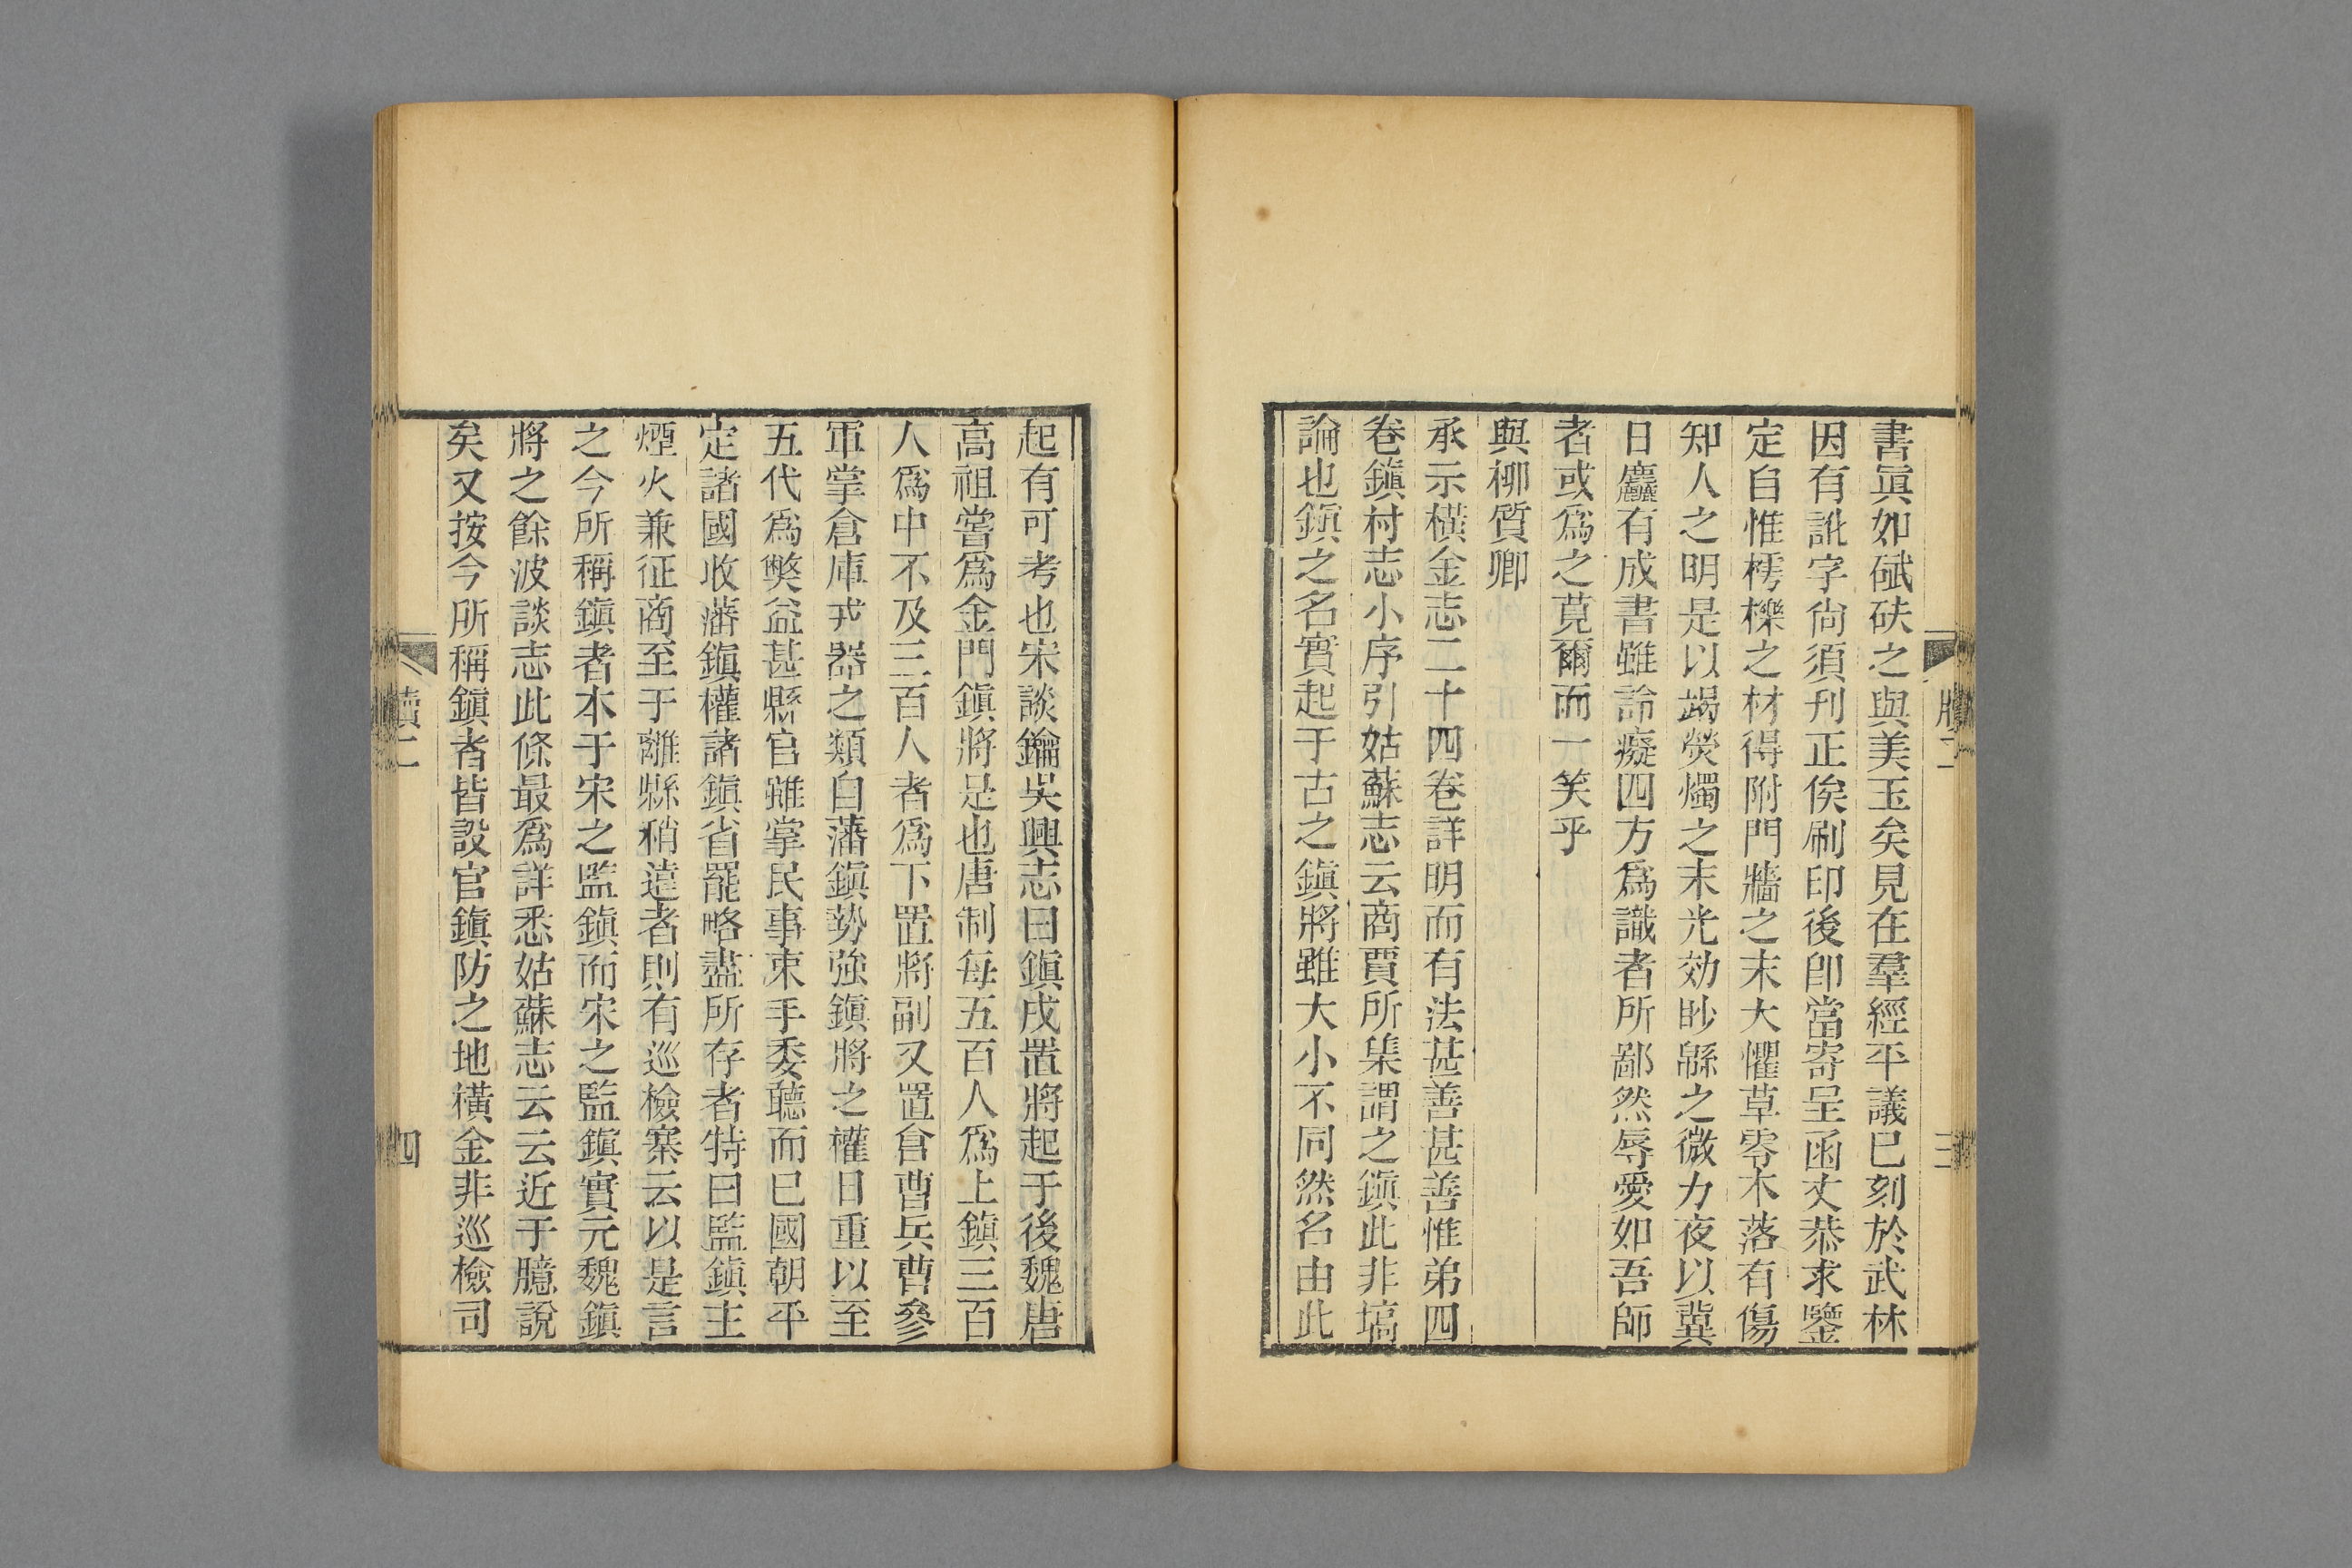 牘二
三
書眞如碔砆之與美玉矣見在羣經平議已刻於武林
因有訛字尙須刋正俟刷印後卽當寄呈函丈恭求鑒
定自惟樗櫟之材得附門牆之末大懼草零木落有傷
知人之明是以竭熒燭之末光効眇緜之微力夜以冀
日麤有成書雖詅癡四方爲識者所鄙然辱愛如吾師
者或爲之莧爾而一笑乎
與柳質卿
承示橫金志二十四卷詳明而有法甚善甚善惟弟四
卷鎭村志小序引姑蘇志云商賈所集謂之鎭此非塙
論也鎭之名實起于古之鎭將雖大小不同然名由此
起有可考也宋談鑰吳興志曰鎭戍置將起于後魏唐
高祖嘗爲金門鎭將是也唐制每五百人爲上鎭三百
人爲中不及三百人者爲下置將副又置倉曹兵曹參
軍掌倉庫戎器之類自藩鎭勢強鎭將之權日重以至
五代爲獘益甚縣官雖掌民事束手委聽而已國朝平
定諸國收藩鎭權諸鎭省罷略盡所存者特曰監鎭主
煙火兼征商至于離縣稍遠者則有巡檢寨云以是言
之今所稱鎭者本于宋之監鎭而宋之監鎭實元魏鎭
將之餘波談志此條最爲詳悉姑蘇志云云近于臆說
矣又按今所稱鎭者皆設官鎭防之地橫金非巡檢司
牘二
四